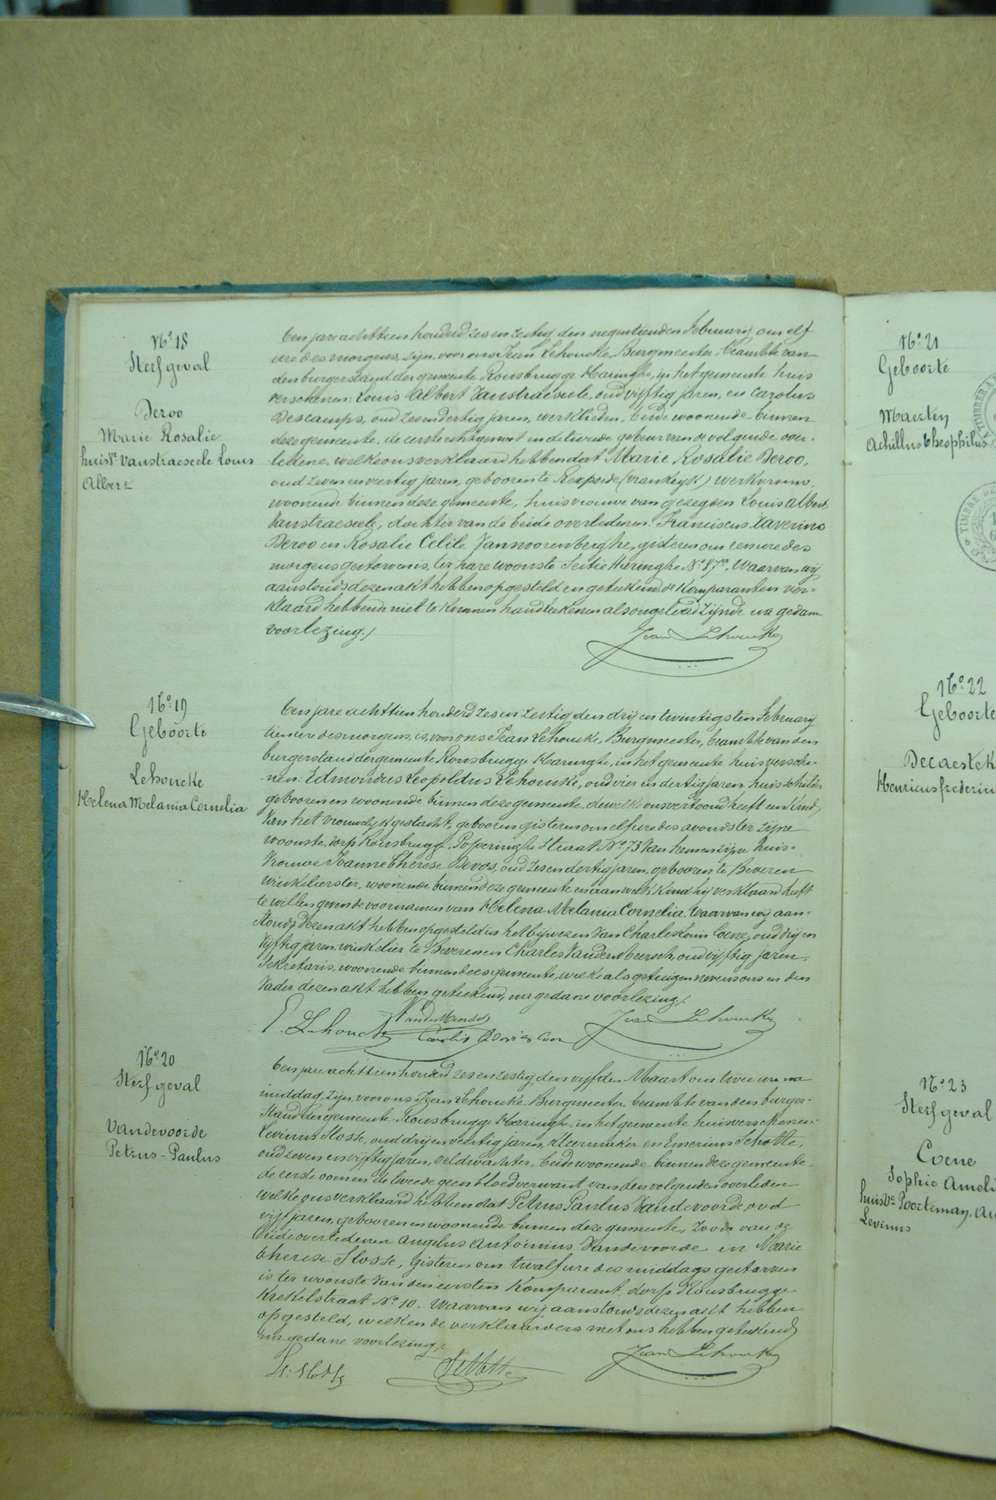 N° 18
Sterfgeval
Deroo
Marie Rosalie
huisv. Vanstraeseele Louis
Albert
Een jare achttien honderd zes en zestig den negentienden Februarij om elf
ure des morgens, zijn voor ons Jean Lehoucke, Burgmeester beambte van
den burgerstand der gemeente Rousbrugge Haringhe, in het gemeente huis
verschenen: Louis Albert Vanstraeseele, oud vijftig jaren, en Carolus
Descamps, oud zevendertig jaren, werklieden, beide woonende binnen
deze gemeente, de eerste echtgenoot en de tweede gebuer van de volgende over-
ledene, welke ons verklaard hebben dat Marie Rosalie Deroo,
oud zeven en veertig jaren, geboren te Rexpoede (vrankrijk) werkvrouw,
woonende binnen deze gemeente, huisvrouwe van gezegden Louis Albert
Vanstraeseele, dochter van de beide overledenen Franciscus Xaverius
Deroo en Rosalie Celile Vannoorenberghe, gisteren om een ure des
morgens gestorven is, ter hare woonste Sectie Haringhe N° 87. Waarvan wij
aanstonds dezen akt hebben opgesteld en geteekend, de Komparanten ver-
klaard hebbende niet te kunnen handteekenen als ongeleerd zijnde na gedane
voorlezing./
Jean Lehoucke
N° 19
Geboorte
Lehoucke
Helena Melania Cornelia
Een jare achttien honderd zes en zestig den drij en twintigsten Februarij
tien ure des morgens, is, voor ons Jean Lehoucke, Burgmeester, beambte van den
burgerstand der gemeente Rousbrugge Haringhe, in het gemeente huis versche-
nen Edmondus Leopoldus Lehoucke, oud vier en dertig jaren huisschilder
geboren en woonende binnen deze gemeente, dewelke ons vertoond heeft een kind,
van het vrouwelijk geslacht, geboren gisteren om elf ure des avonds ter zijne
woonste, dorp Rousbrugge Poperinghe Straat N° 73 van hem en zijne huis-
vrouwe Joanne Therese Devos, oud zes en dertig jaren, geboren te Beveren
winkelierster, woonende binnen deze gemeente en aan welk kind hij verklaard heeft
te willen geven de voornamen van Helena Melania Cornelia. Waarvan wij aan-
stonds dezen akt hebben opgesteld in het bijwezen van Charles Louis Coene, oud drij en
vijftig jaren winkelier te Beveren en Charles Vandermeersch, oud vijftig jaren,
Sekretaris, woonende binnen deze gemeente, welke als getuigen nevens ons en den
vader dezen akt hebben geteekend, na gedane voorlezing./
E. Lehoucke
Jean Lehoucke
N° 20
Sterfgeval
Vandevoorde
Petrus-Paulus
Een jare achttien honderd zes en zestig den vijfden Maart om twee ure na
middag, zijn voor ons Jean Lehoucke Burgmeester beambte van den burger-
stand der gemeente Rousbrugge Haringhe, in het gemeente huis verschenen
Levinus Hoste, oud drij en veertig jaren, kleermaker en Emerinus Scholte,
oud zeven en vijftig jaren, veldwachter, beide woonende binnen deze gemeente
de eerste oom en de tweede geen bloedverwant van den volgenden overleden
welke ons verklaard hebben dat Petrus Paulus Vandevoorde, oud
vijf jaren, geboren en woonende binnen deze gemeente, zoon van de
beide overledenen Angelus Antoinius Vandevoorde en Marie
Therese Hoste, gisteren om twalf ure des middags gestorven
is ter woonste van den eersten Komparant dorp Rousbrugge
Krekelstraat N° 10. Waarvan wij aanstonds dezen akt hebben
opgesteld, welken de verklaarders met ons hebben geteekend
na gedane voorlezing./
Jean Lehoucke
N° 21
Geboorte
Maerten
Achillus Theophilus
N° 22
Geboorte
Henricus
N° 23
Sterfgeval
Coene
Sophie
Levinus